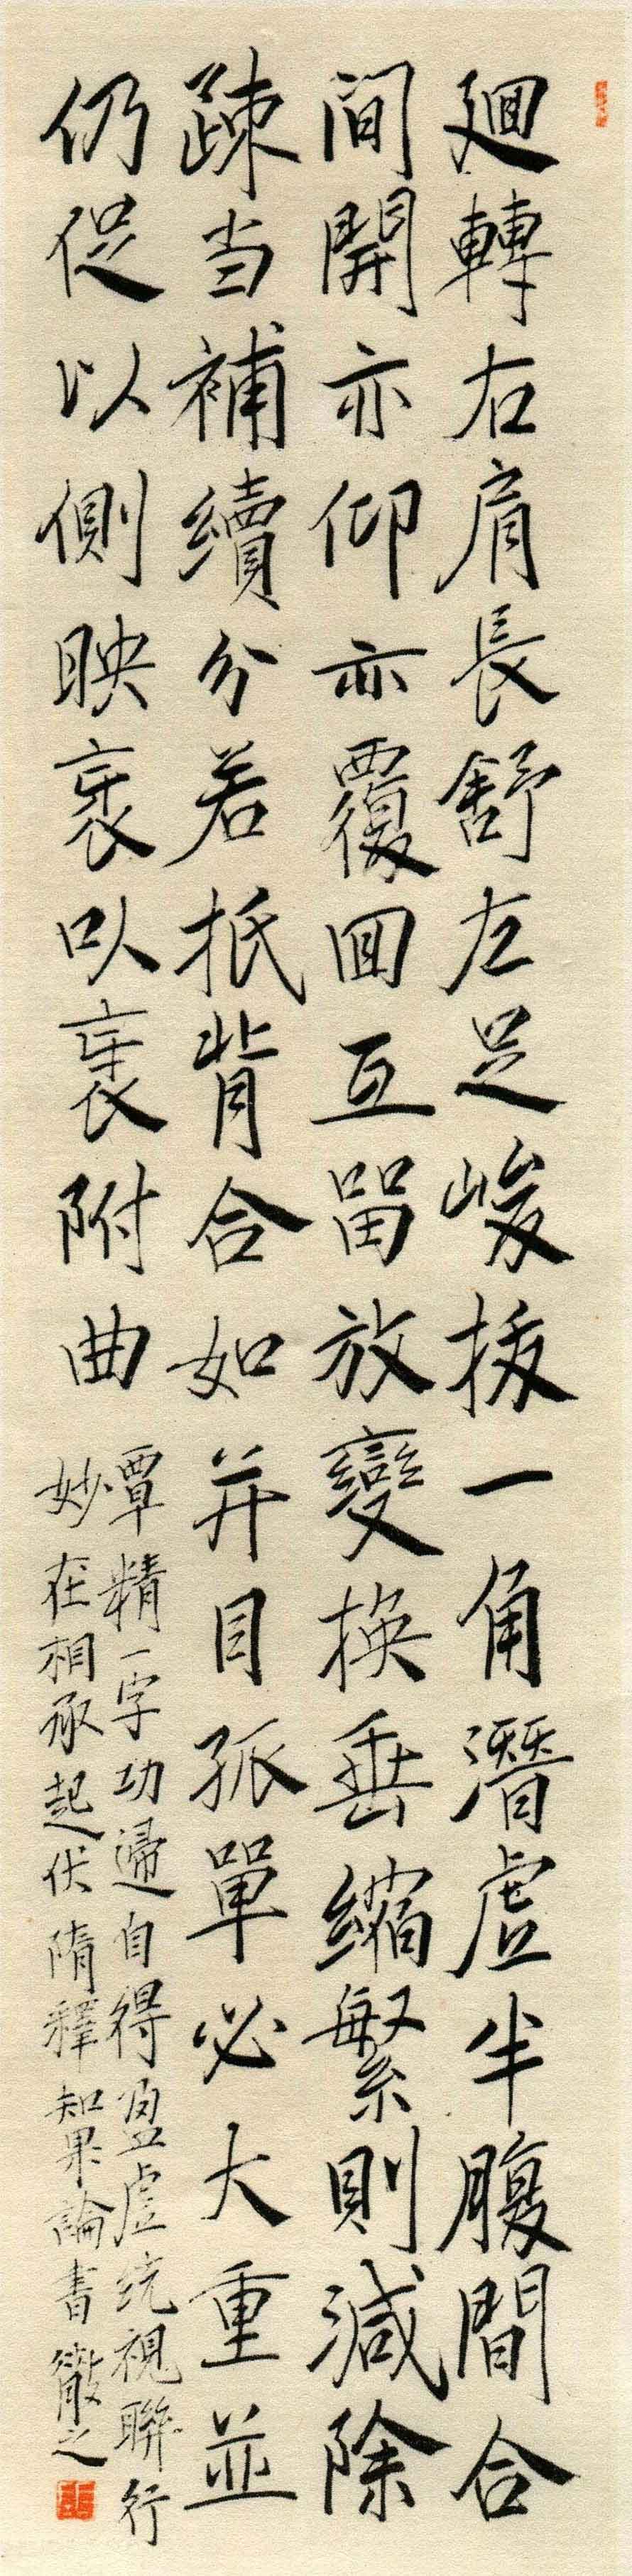 廻轉右肩長舒左足峻拔一角潛虛半腹間合
間開亦仰亦覆回互留放變換垂縮繁則減除
疎当補續分若抵背合如并目孤單必大重並
仍促以側映衺以衺附曲
覃精一字功歸自得盈虛统視聯行
妙在相承起伏隋釋智果論書徽之